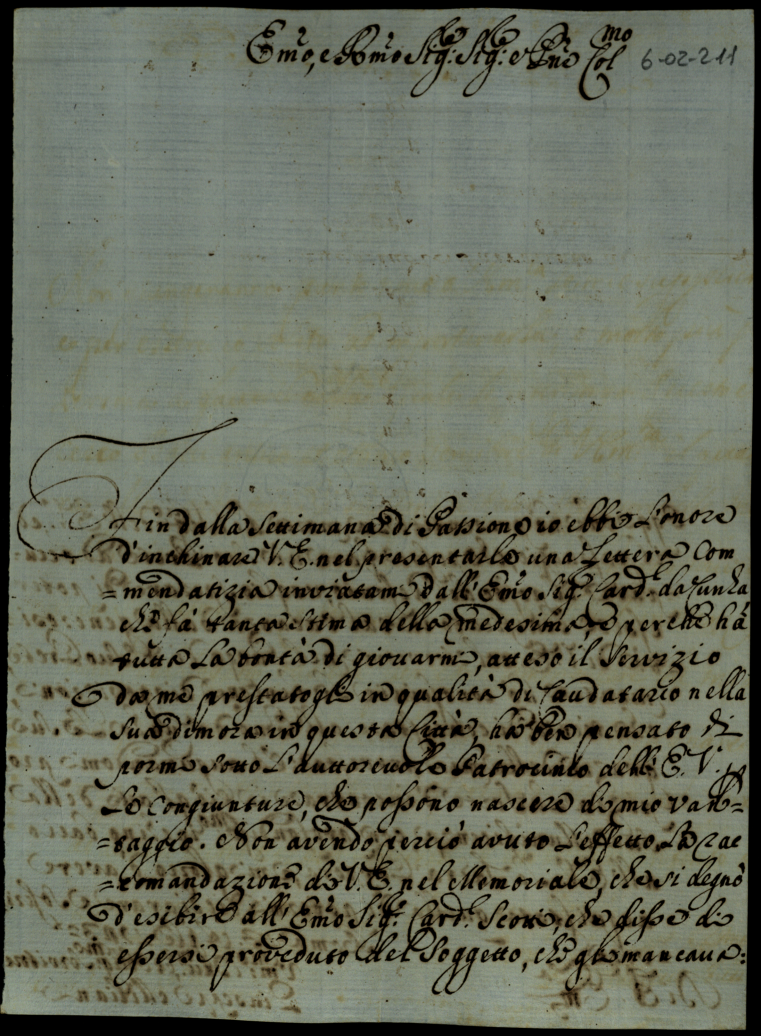 Em̃o, e Rm̃o Sig:re Sig:re e Pr̃one Col.mo 6-02-211
Fin dalla Settimana di Passione io ebbi l'onore
d'inchinare V. E. nel presentarle una Lettera Com
=mendatizia inviatami dall' Em̃o Sig.r Card. da Cunha
che fà tanta stima della medesima, e perche hà
tutta la bontà di giovarmi, atteso il Servizio
da me prestatogli in qualità di Caudatario nella
sua dimora in questa Città, hà ben pensato di
pormi sotto l'auttorevole Patrocinio dell' E. V. p
le congiunture, che possono nascere di mio van=
=taggio. Non avendo perciò avuto l'effetto la rac
=comandazione di V. E. nel Memoriale, che si degnò
d'esibire all' Em̃o Sig.r Card. Scotti, che disse di
essersi proveduto del Soggetto, che gli mancava: